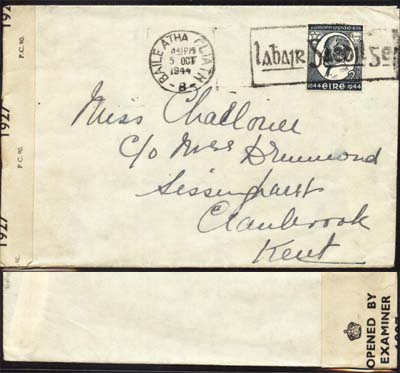 192
P.C. 90.
1927
P.C. 90.
1927
BAILE ATHA CLIATH
5 OCT
1944
8
labair
1644 EIRE 1944
Miss Challoner
c/o Miss Drummond
Sissinghurst
Cranbrook
Kent
OPENED BY
EXAMINER